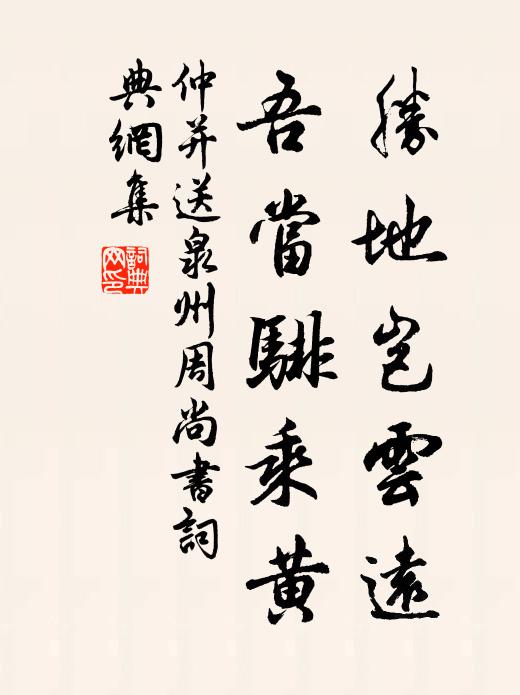 勝地豈雲遠
吾當騑乘黃
仲并送泉州周尚書詞
典網集
詞典網印